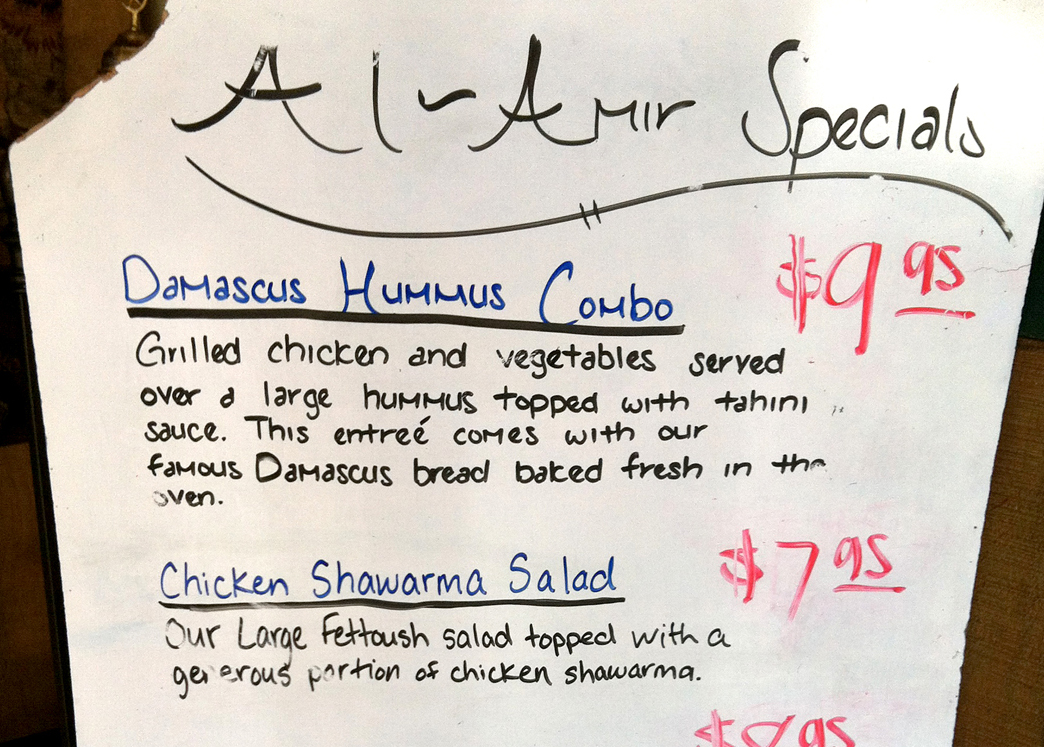 Al-Amir Specials
Damascus Hummus Combo $9.95
Grilled chicken and vegetables served
over a large hummus topped with tahini
sauce. This entreé comes with our
famous Damascus bread baked fresh in the
oven.
Chicken Shawarma Salad $7.95
Our Large Fettoush salad topped with a
generous portion of chicken shawarma.
$8.95